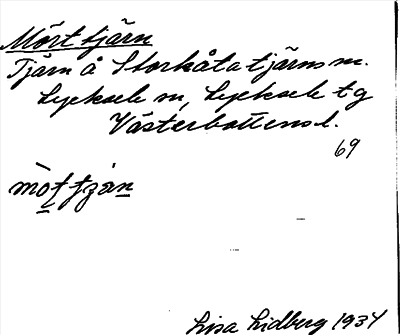 Mörttjärn
Tjärn å Storkåtatjärns m.
Lycksele m, Lycksele tg
Västerbottens l.
69
Lisa Lidberg 1934